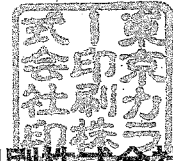 東京カラ
ー印刷株
式会社印